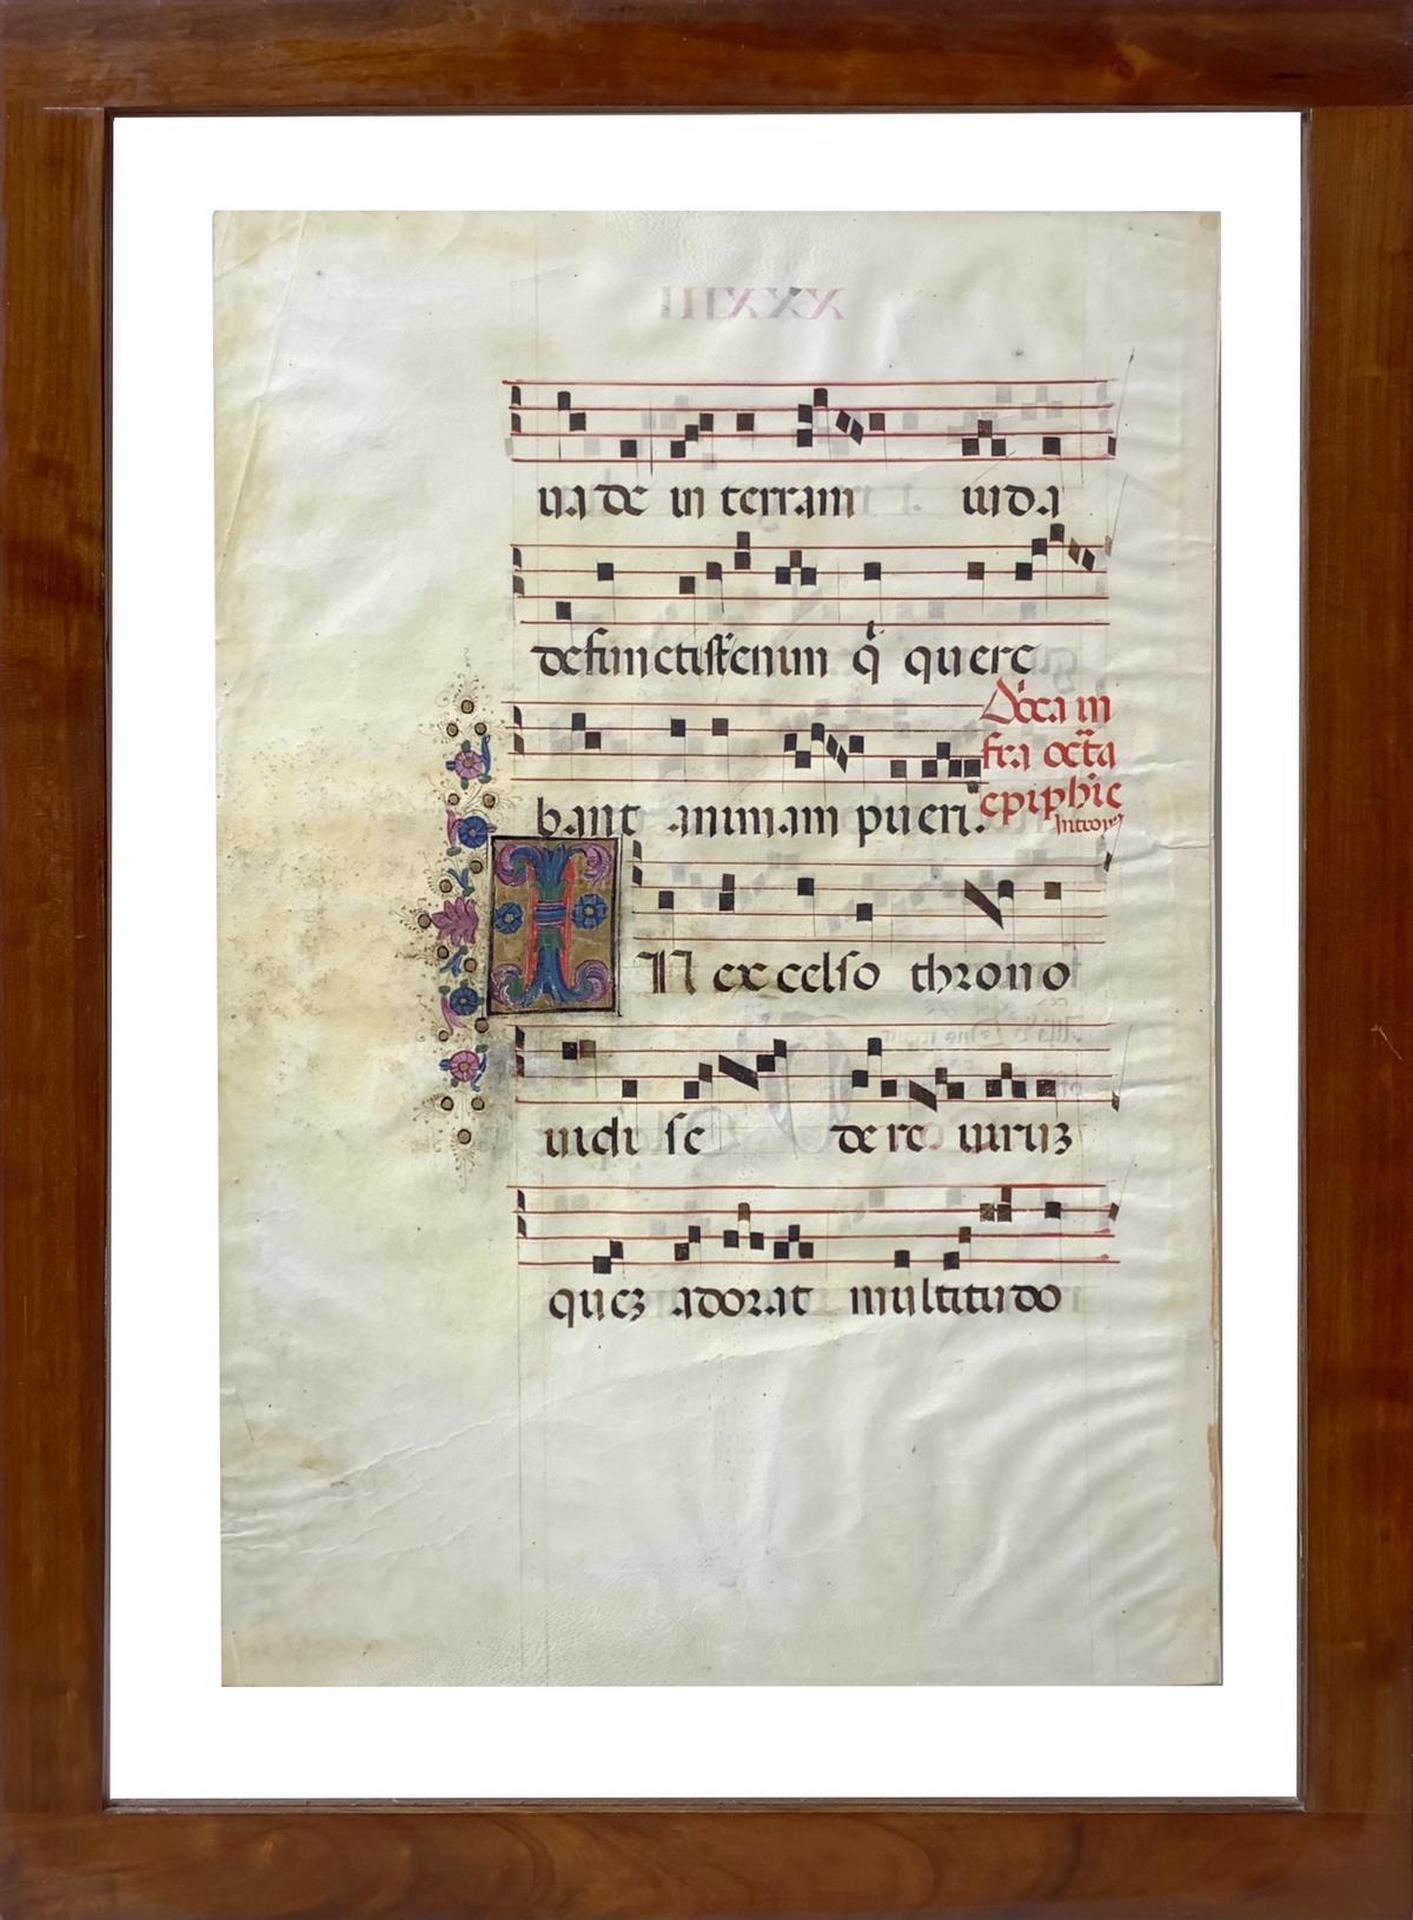 XXXIII
ua de in terram iuda
defuncti st enim q̇ quere
bant animam pueri.
Dn̄ica in
fra octa
epiphie
Introit9
IN excelso throno
uidi se dere uiruꝫ
queꝫ adorat multitudo